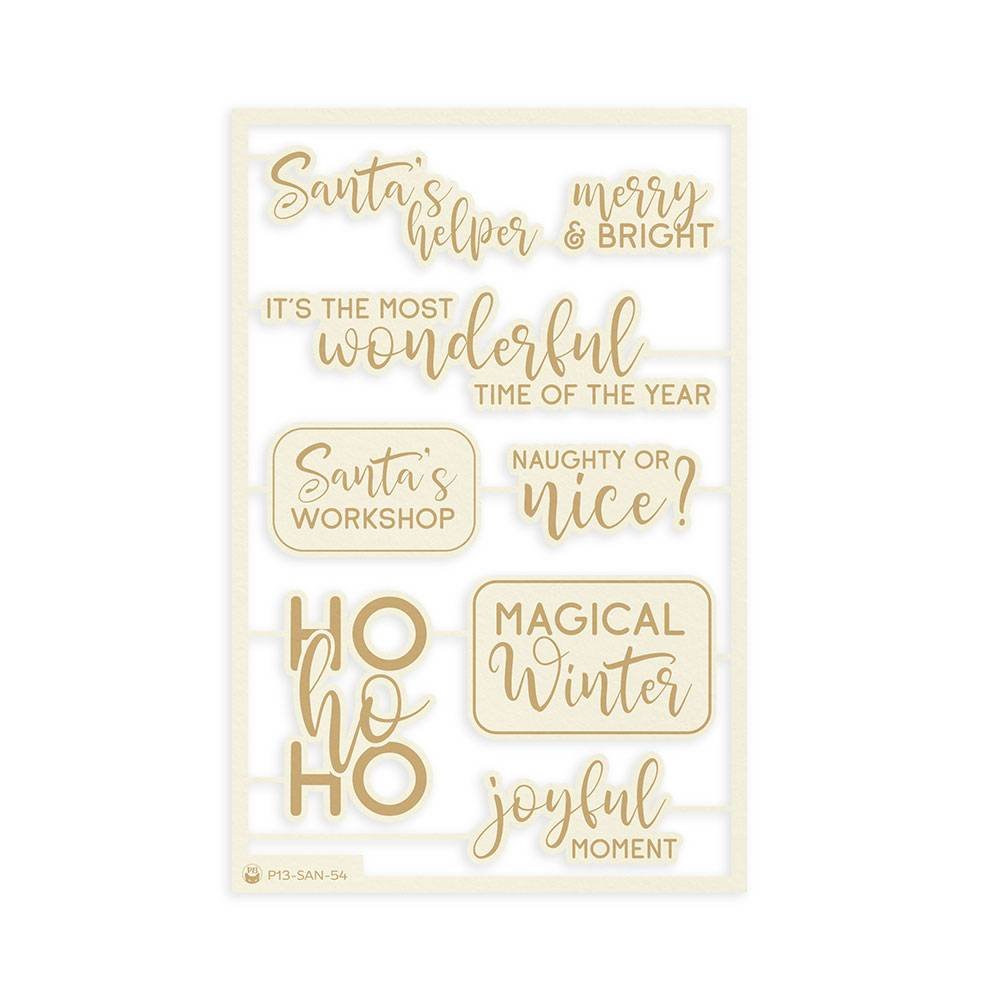 Santa's
helper
merry
& BRIGHT
IT'S THE MOST
wonderful
TIME OF THE YEAR
Santa's
WORKSHOP
NAUGHTY OR
nice?
HO
ho
HO
MAGICAL
Winter
joyful
MOMENT
P13-SAN-54